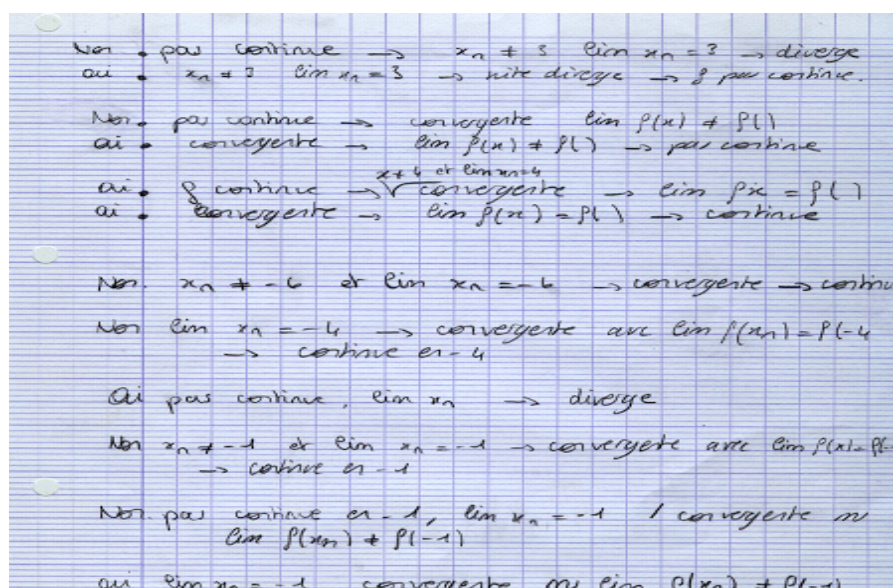 Non • pas continue → xn ≠ 3 lim xn = 3 → diverge
oui • xn ≠ 3 lim xn = 3 → suite diverge → f pas continue.
Non • pas continue → convergente lim f(x) ≠ f( )
oui • convergente → lim f(x) ≠ f( ) → pas continue
x ≠ 4 et lim xn = 4
oui • f continue → convergente → lim fx = f( )
oui • convergente → lim f(x) = f( ) → continue
Non. xn ≠ -6 et lim xn = -6 → convergente → continu
Non lim xn = -4 → convergente avc lim f(xn) = f(-4
→ continue en -4
Oui pas continue, lim xn → diverge
Non xn ≠ -1 et lim xn = -1 → convergente avec lim f(x) = f(-
→ continue en -1
Non. pas continue en -1, lim xn = -1 / convergente
lim f(xn) ≠ f(-1)
oui lim xn = -1 convergente lim f(xn) ≠ f(-1)